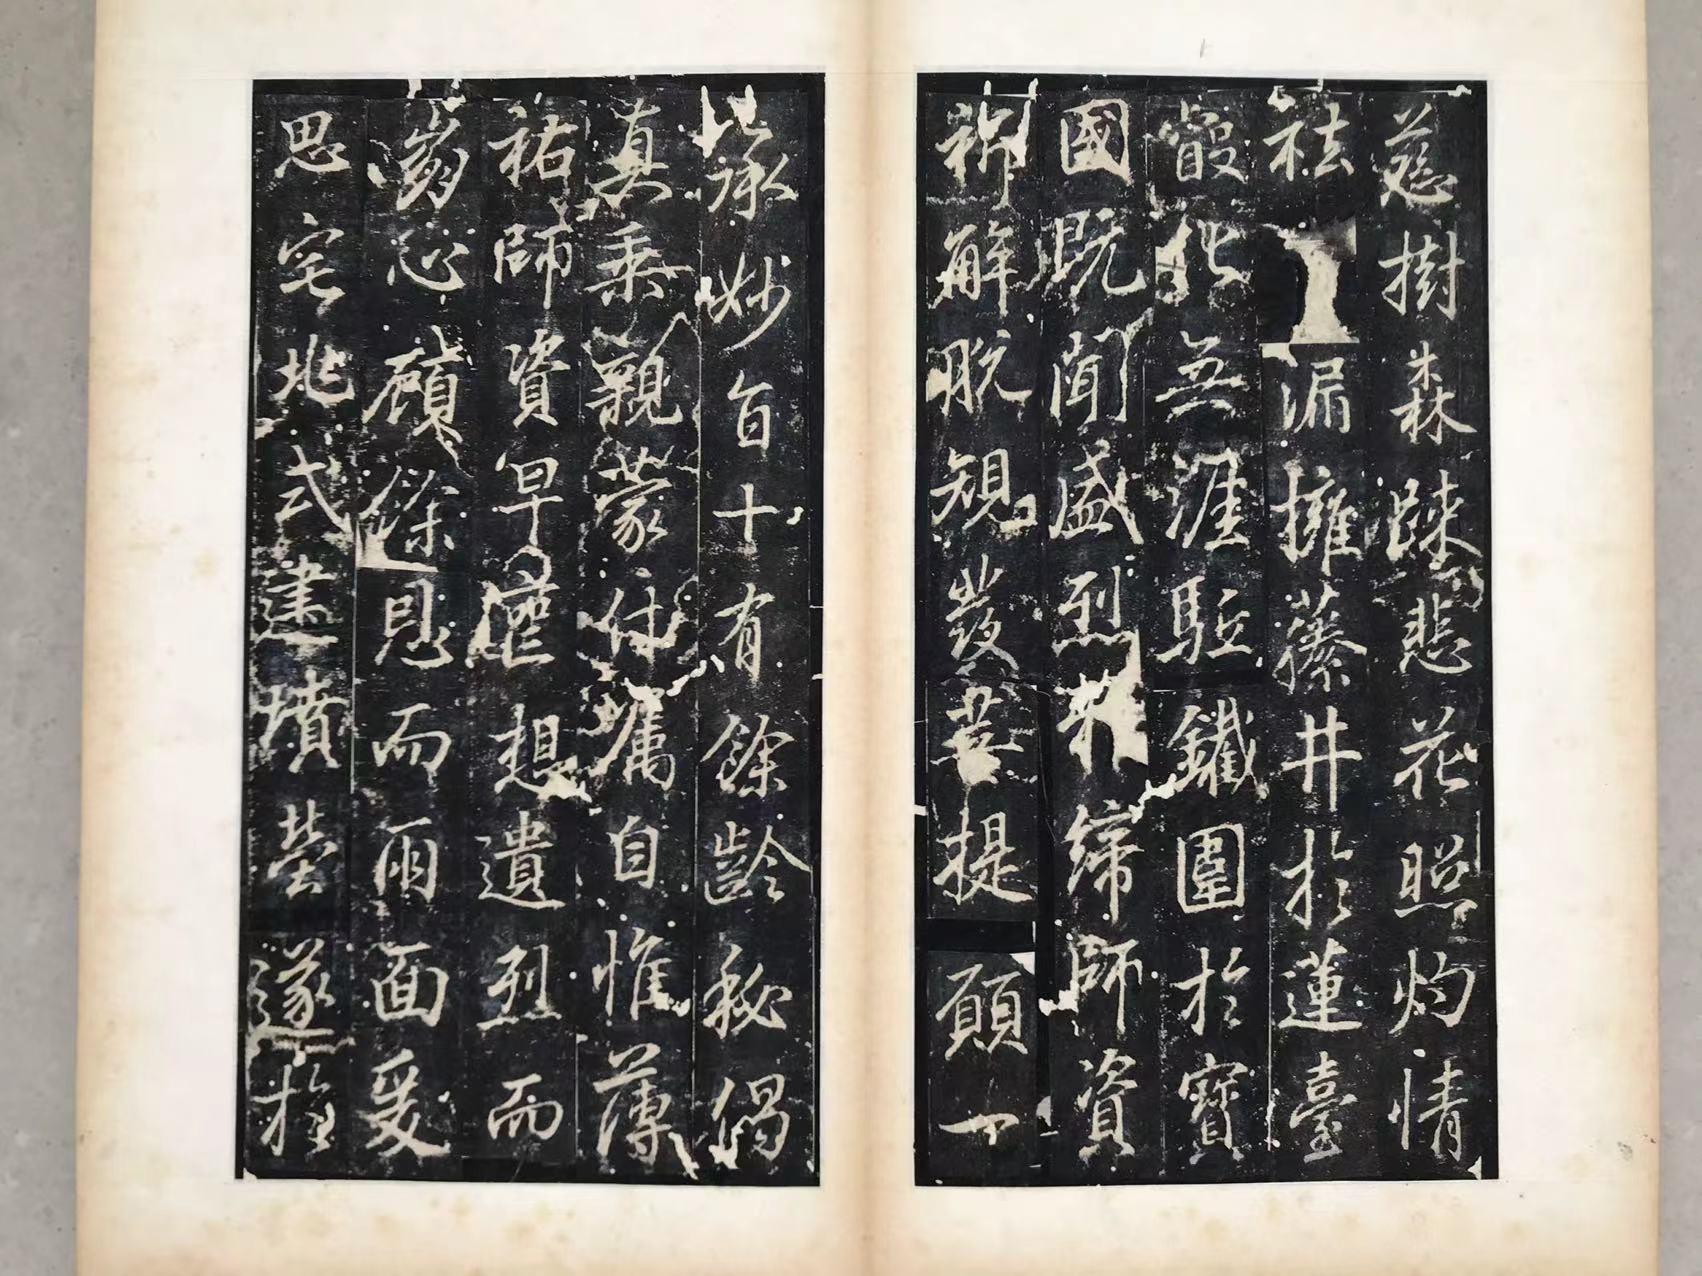 慈樹森踈悲花照灼情
祛漏擁藤井於蓮臺
化無涯駐鐵圍於寶
國既聞盛烈未締師資
祈解脫規發菩提願一
承妙旨十有餘齡秘偈
真乘親蒙付囑自惟薄
祐師資早想遺烈而
崩心顧餘恩而雨面爰
思宅兆式建墳塋遂於